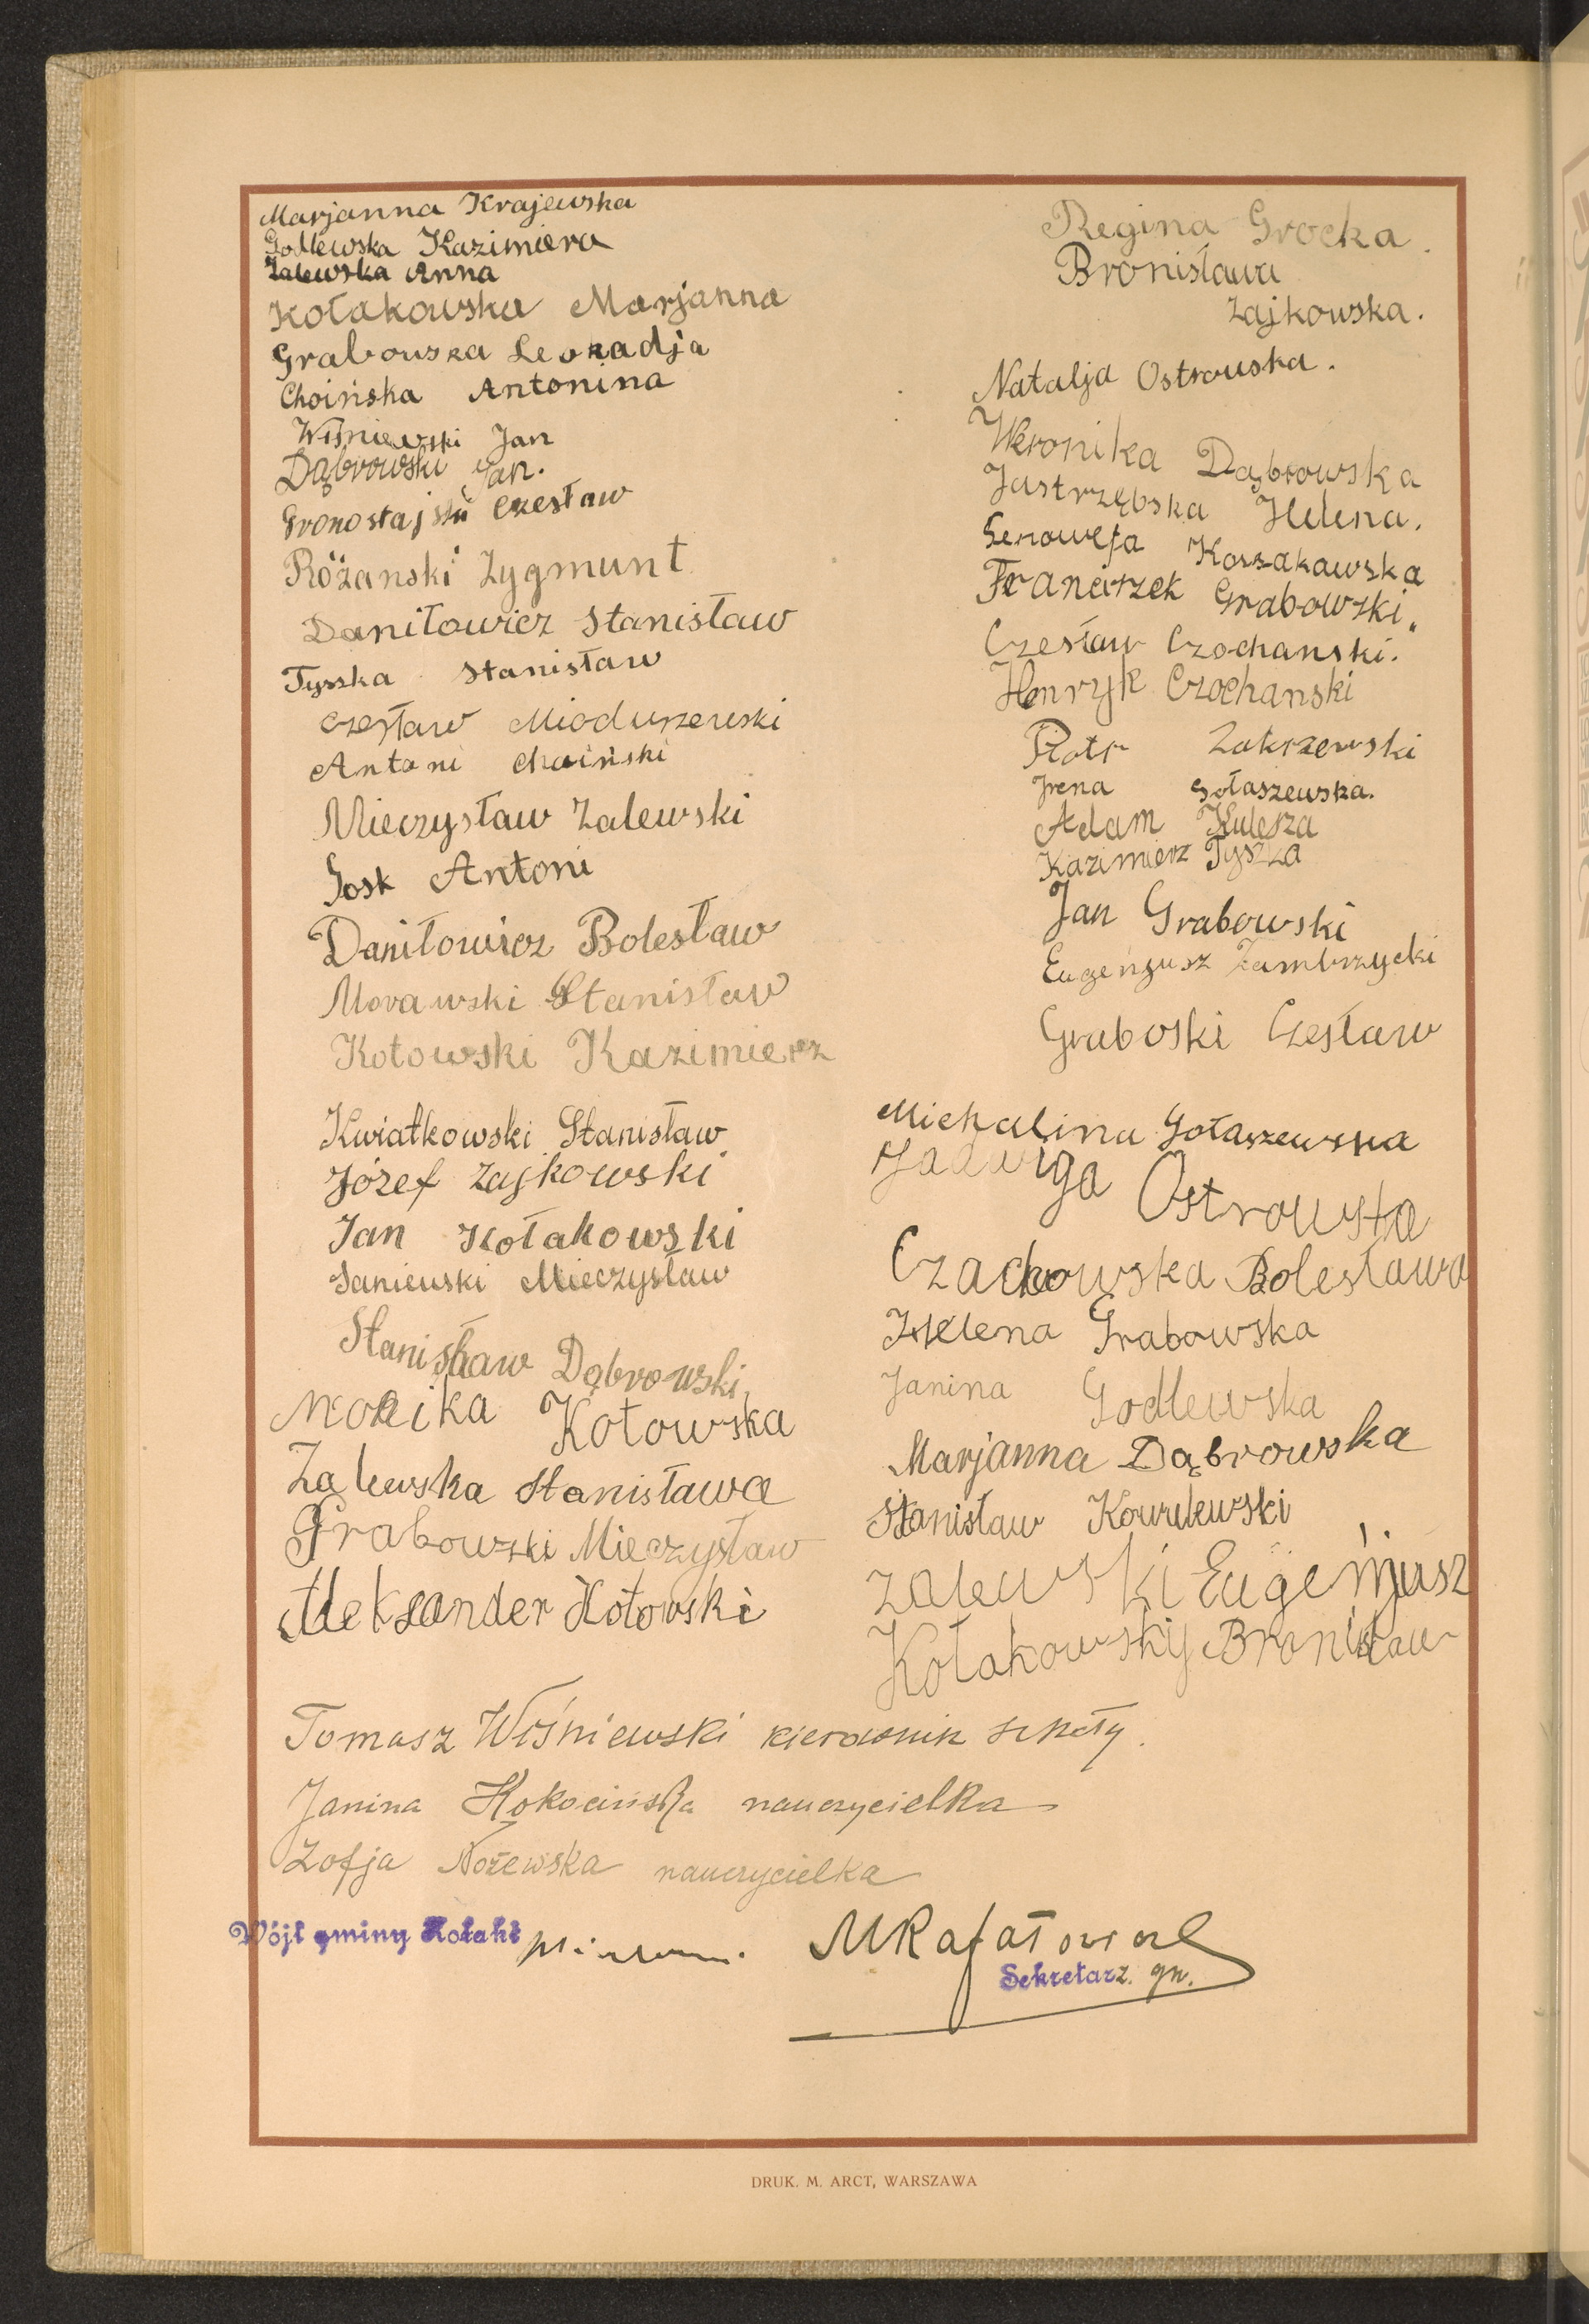 Marjanna Krajewska
Godlewska Kazimiera
Zalewska Anna
Kołakowska Marjanna
Grabowska Leokadja
Choińska Antonina
Wiśniewski Jan
Dąbrowski Jan.
Gronostajski Czesław
Różanski Zygmunt
Daniłowicz Stanisław
Tyszka Stanisław
Czesław Mioduszewski
Antoni Choiński
Mieczysław Zalewski
Gosk Antoni
Daniłowicz Bolesław
Morawski Stanisław
Kotowski Kazimierz
Kwiatkowski Stanisław
Józef Zajkowski
Jan Kołakowski
Saniewski Mieczysław
Stanisław Dąbrowski
Monika Kotowska
Zalewska Stanisława
Grabowski Mieczysław
Aleksander Kotowski
Regina Grocka.
Bronisława
Zajkowska.
Natalja Ostrowska.
Weronika Dąbrowska
Jastrzębska Helena.
Genowefa Kossakowska
Franciszek Grabowski.
Czesław Czochanski.
Henryk Czochanski
Piotr Zakrzewski
Irena Gołaszewska.
Adam Kulesza
Kazimierz Tyszka
Jan Grabowski
Eugenjusz Zambrzycki
Graboski Czesław
Michalina Gołaszewska
Jadwiga Ostrowska
Czachowska Bolesława
Helena Grabowska
Janina Godlewska
Marjanna Dąbrowska
Stanisław Kowalewski
Zalewski Eugenjusz
Kołakowskij Bronisław
Tomasz Wiśniewski kierownik szkoły.
Janina Kokocińska nauczycielka
Zofja Nożewska nauczycielka
Wójt gminy Kołaki
MRafałowicz
Sekretarz gm.
DRUK. M. ARCT, WARSZAWA